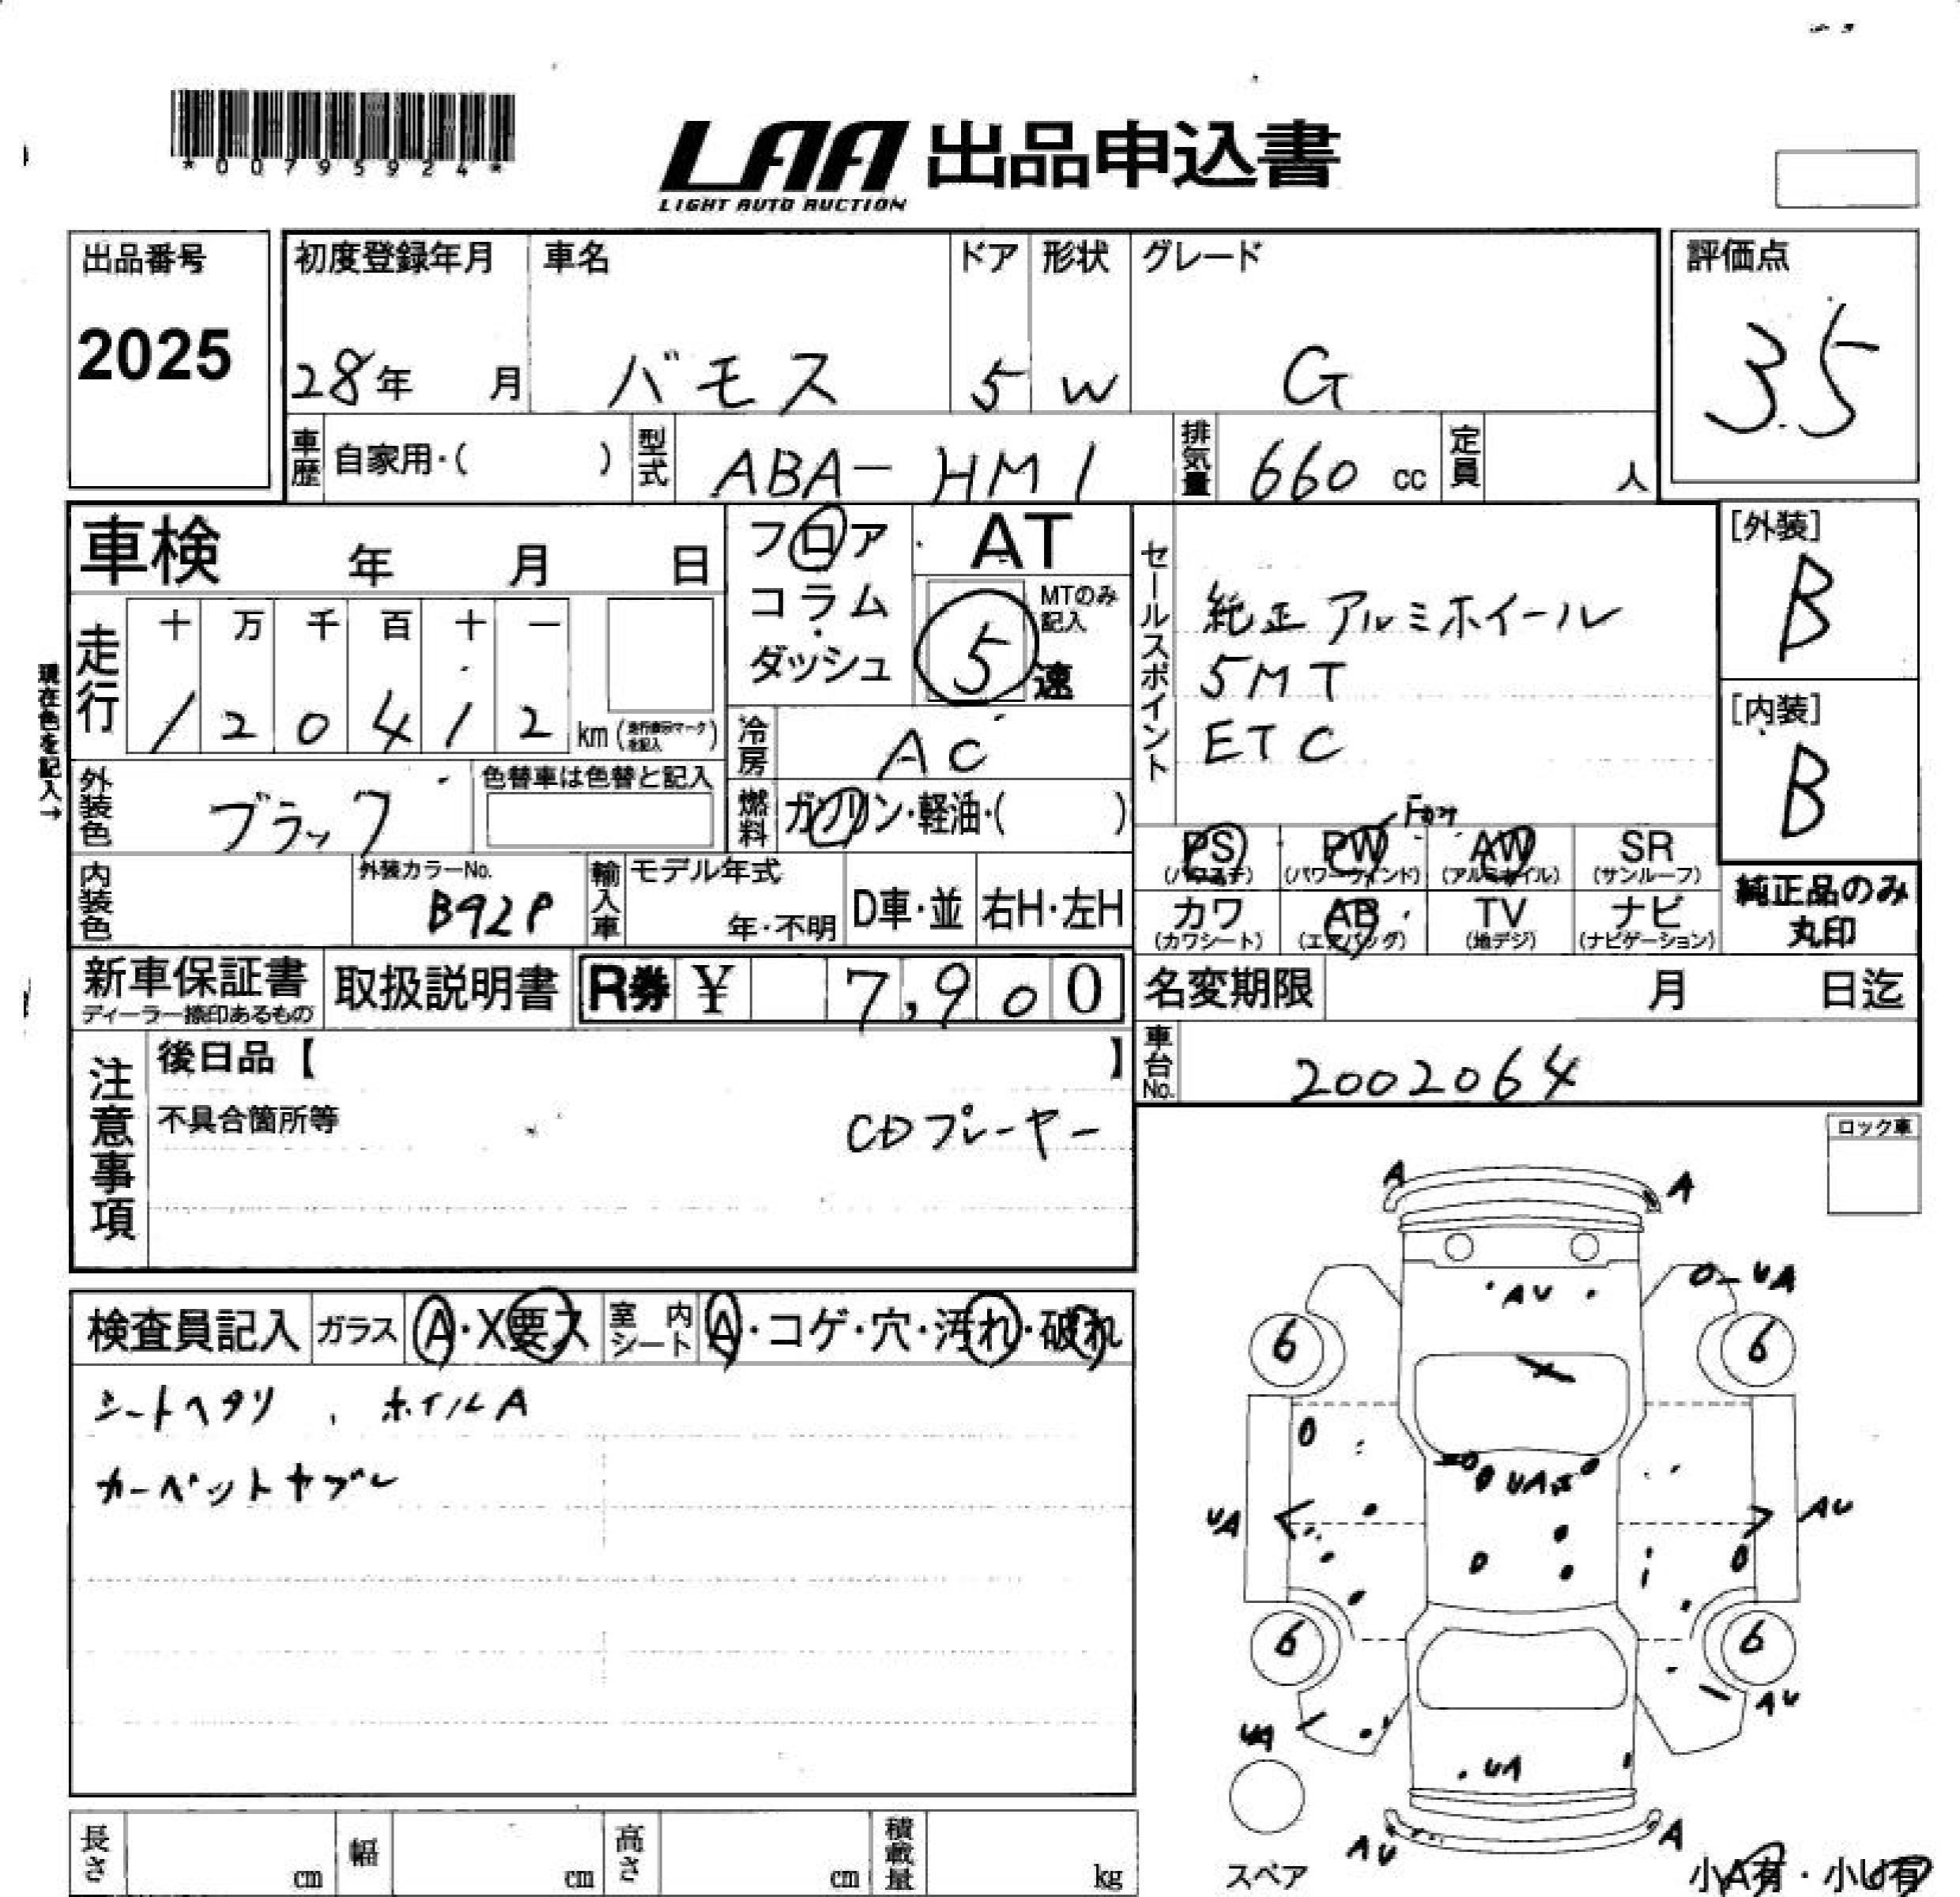 *00795924*
LAA 出品申込書
LIGHT AUTO AUCTION
出品番号
2025
初度登録年月 車名 ドア 形状 グレード
28年 月 バモス 5 W G
評価点
3.5
車歴 自家用・( ) 型式 ABA-HM1 排気量 660 cc 定員 人
車検 年 月 日
フロア
コラム
ダッシュ
AT
MTのみ記入
5 速
走行 十 万 千 百 十 一
1 2 0 4 1 2 km (走行表示マークを記入)
現在色を記入→
冷房 AC
外装色 ブラック 色替車は色替と記入
燃料 ガソリン・軽油・( )
セールスポイント
純正アルミホイール
5MT
ETC
[外装]
B
[内装]
B
PS (パワステ) PW (パワーウインド) AW (アルミホイル) SR (サンルーフ)
カワ (カワシート) AB (エアバッグ) TV (地デジ) ナビ (ナビゲーション)
純正品のみ丸印
内装色 外装カラーNo. B92P 輸入車 モデル年式 年・不明 D車・並 右H・左H
新車保証書 ディーラー捺印あるもの 取扱説明書 R券 ¥ 7,900
名変期限 月 日迄
車台No. 2002064
注意事項
後日品【 】
不具合箇所等 CDプレーヤー
ロック車
検査員記入 ガラス A・X要ス 室内シート A・コゲ・穴・汚れ・破れ
シートヘタリ、ホイルA
カーペットヤブレ
A A
AU UA
6 6
UA
UA AU
6 6
AU
UA
UA
AU A
スペア
小A有・小U有
長さ cm 幅 cm 高さ cm 積載量 kg